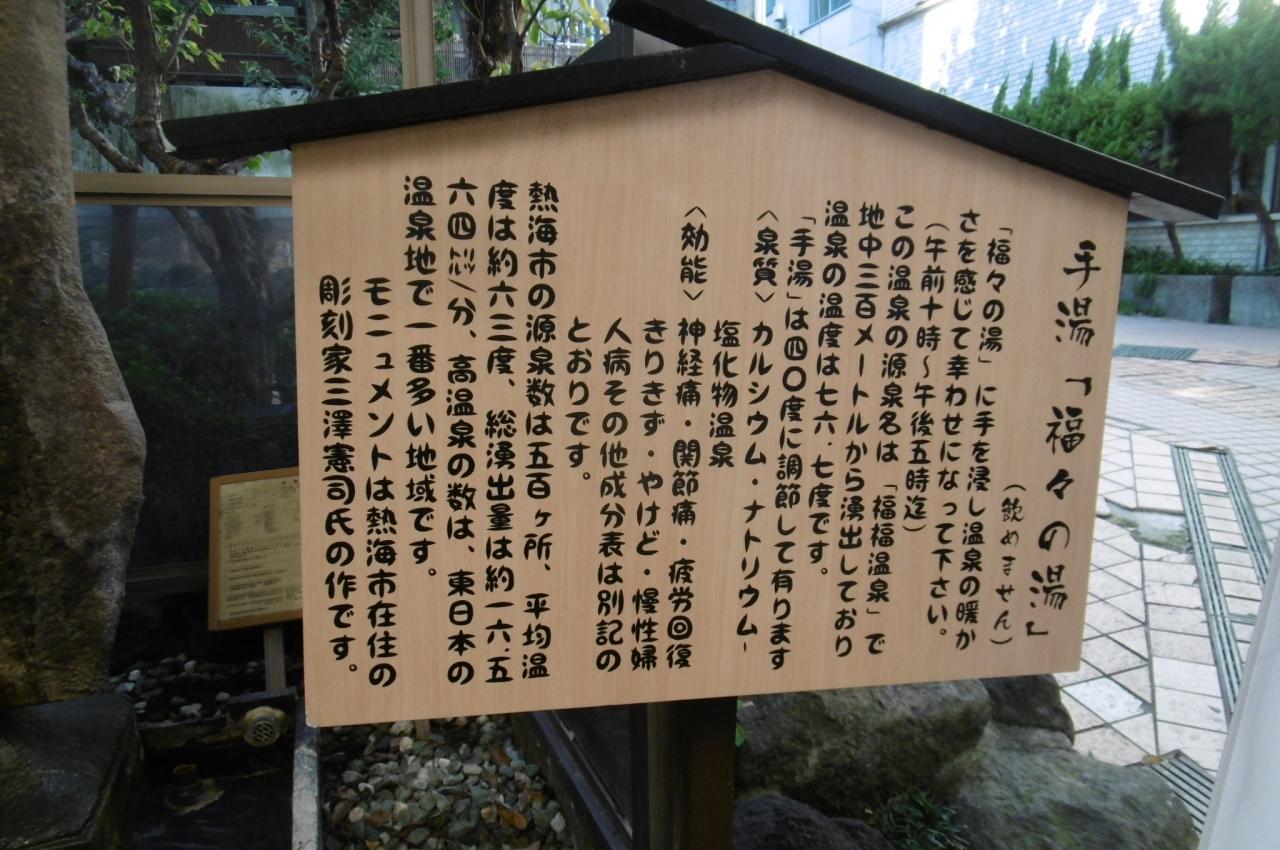 手湯「福々の湯」
(飲めません)
「福々の湯」に手を浸し温泉の暖か
さを感じて幸わせになって下さい。
(午前十時～午後五時迄)
この温泉の源泉名は「福福温泉」で
地中三百メートルから湧出しており
温泉の温度は七六・七度です。
「手湯」は四〇度に調節して有ります
〈泉質〉カルシウム・ナトリウム-
塩化物温泉
〈効能〉神経痛・関節痛・疲労回復
きりきず・やけど・慢性婦
人病その他成分表は別記の
とおりです。
熱海市の源泉数は五百ヶ所、平均温
度は約六三度、総湧出量は約一六・五
六四㌧/分、高温泉の数は、東日本の
温泉地で一番多い地域です。
モニュメントは熱海市在住の
彫刻家三澤憲司氏の作です。